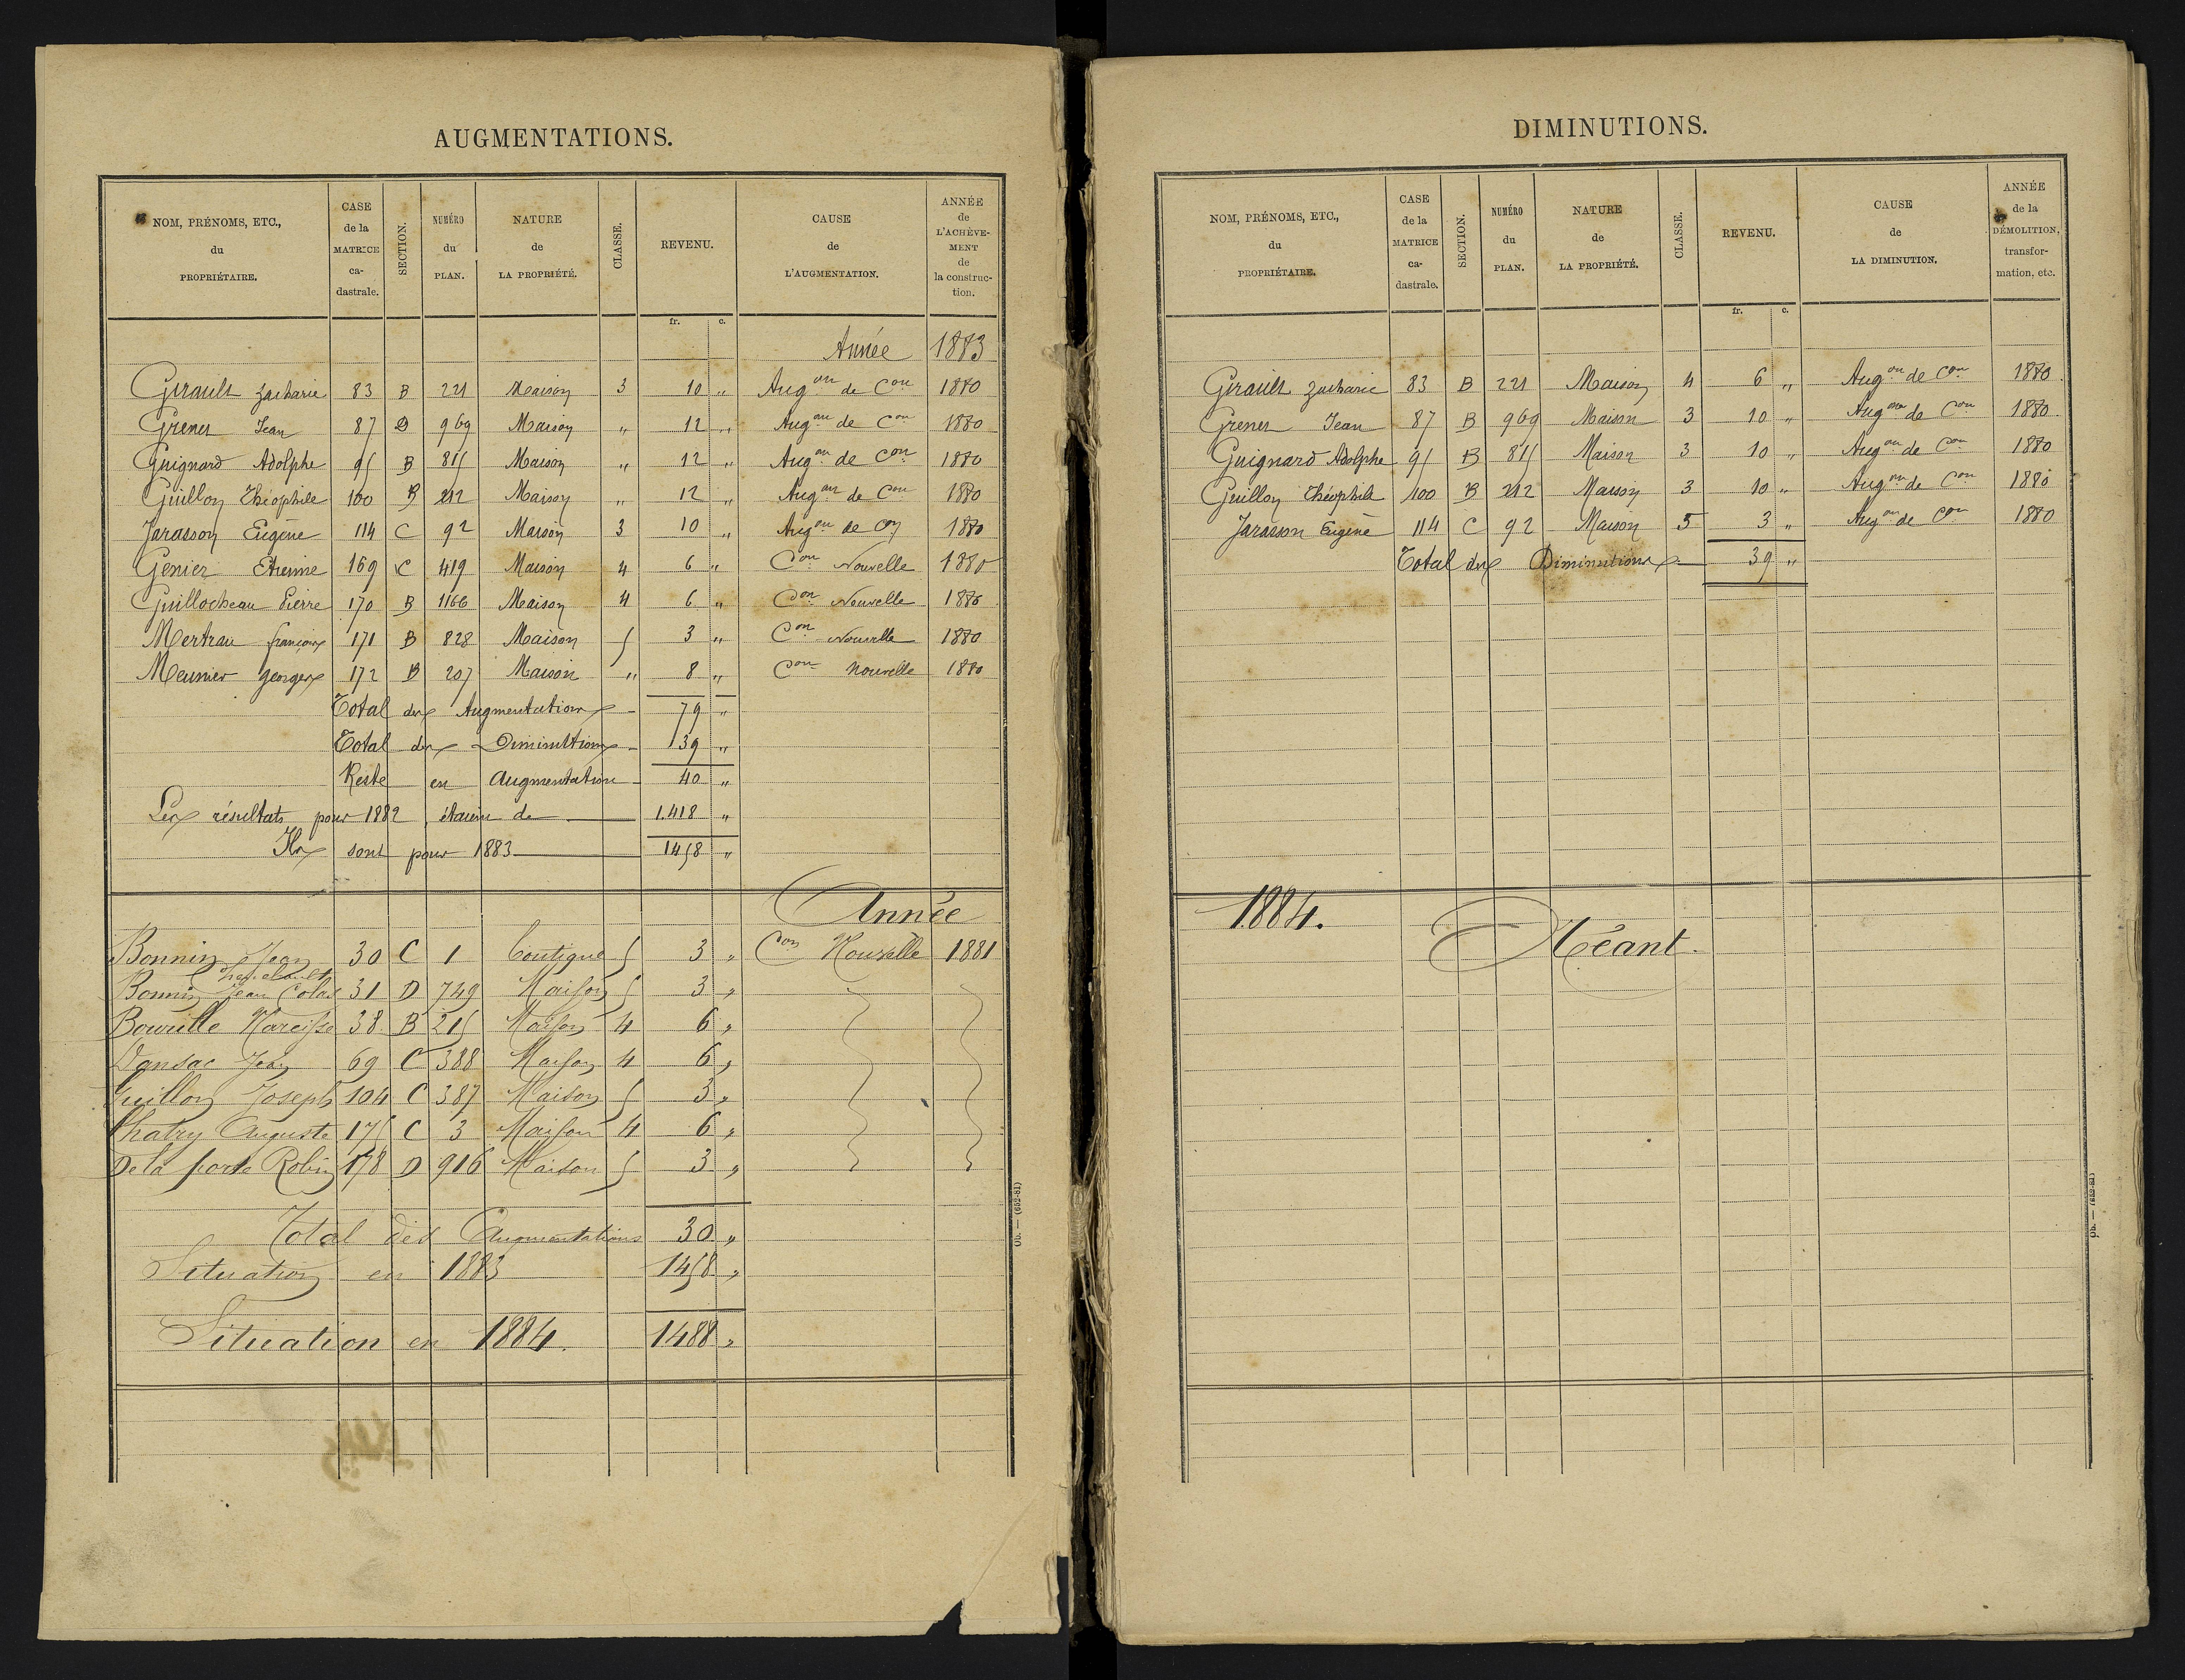 AUGMENTATIONS.
NOM, PRÉNOMS, ETC., du PROPRIÉTAIRE. CASE de la MATRICE ca- dastrale. SECTION. NUMÉRO du PLAN. NATURE de LA PROPRIÉTÉ. CLASSE. REVENU. CAUSE de L'AUGMENTATION. ANNÉE de L'ACHÈVE- MENT de la construc- tion.
fr. c.
Année 1883
Girault Zacharie 83 B 221 Maison 3 10 " Augon de Con 1880
Grener Jean 87 D 969 Maison " 12 " Augon de Con 1880
Guignard Adolphe 95 B 815 Maison " 12 " Augon de Con 1880
Guillon Théophile 100 B 212 Maison " 12 " Augon de Con 1880
Jarasson Eugène 114 C 92 Maison 3 10 " Augon de Con 1880
Genier Etienne 169 C 419 Maison 4 6 " Con Nouvelle 1880
Guillocheau Pierre 170 B 1166 Maison 4 6 " Con Nouvelle 1880
Mertrau françois 171 B 828 Maison 5 3 " Con Nouvelle 1880
Meunier georges 172 B 207 Maison " 8 " Con Nouvelle 1880
Total des Augmentations 79 "
Total des Diminutions 39 "
Reste en Augmentation 40 "
Les résultats pour 1882 étaient de 1.418 "
Ils sont pour 1883 1458 "
Année
Bonnin Jean 30 C 1 boutique 5 3 " Con Nouvelle 1881
Bonnin Jean Colas 31 D 749 Maison 5 3 "
Bourille Narcisse 38 B 215 Maison 4 6 "
Dansac Jean 69 C 388 Maison 4 6 "
Guillon Joseph 104 C 387 Maison 5 3 "
Chatry Auguste 175 C 3 Maison 4 6 "
De la porte Robin 178 D 916 Maison 5 3 "
Total des Augmentations 30 "
Situation en 1883 1458 "
Situation en 1884. 1488 "
Ob. — (652-81)
DIMINUTIONS.
NOM, PRÉNOMS, ETC., du PROPRIÉTAIRE. CASE de la MATRICE ca- dastrale. SECTION. NUMÉRO du PLAN. NATURE de LA PROPRIÉTÉ. CLASSE. REVENU. CAUSE de LA DIMINUTION. ANNÉE de la DÉMOLITION, transfor- mation, etc.
fr. c.
Girault Zacharie 83 B 221 Maison 4 6 " Augon de Con 1880
Grener Jean 87 B 969 Maison 3 10 " Augon de Con 1880
Guignard Adolphe 95 B 815 Maison 3 10 " Augon de Con 1880
Guillon Théophile 100 B 212 Maison 3 10 " Augon de Con 1880
Jarasson Eugène 114 C 92 Maison 5 3 " Augon de Con 1880
Total des Diminutions 39 "
1884.
Néant.
Ob. — (652-81)